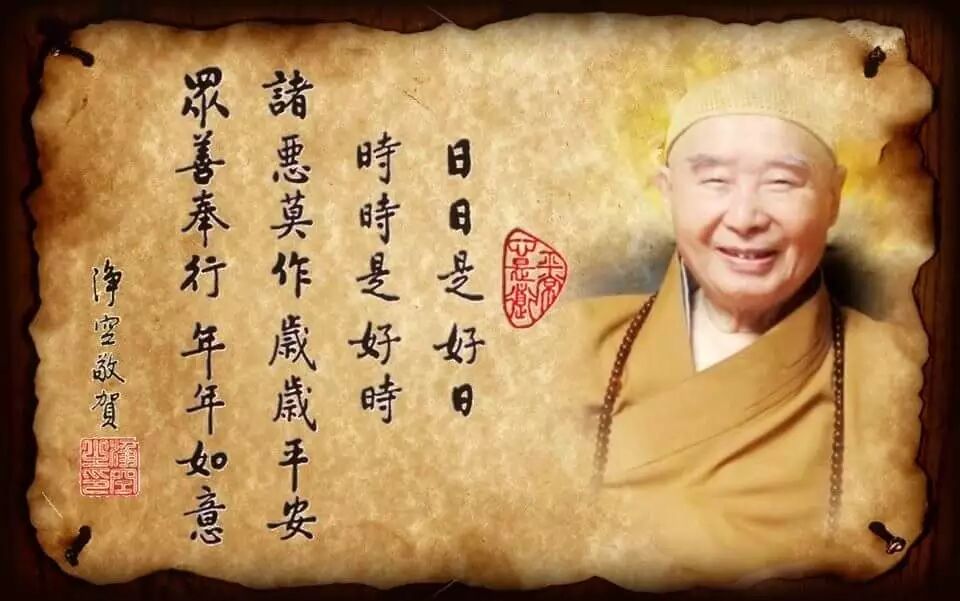 日日是好日
時時是好時
諸惡莫作 歲歲平安
眾善奉行 年年如意
淨空敬賀